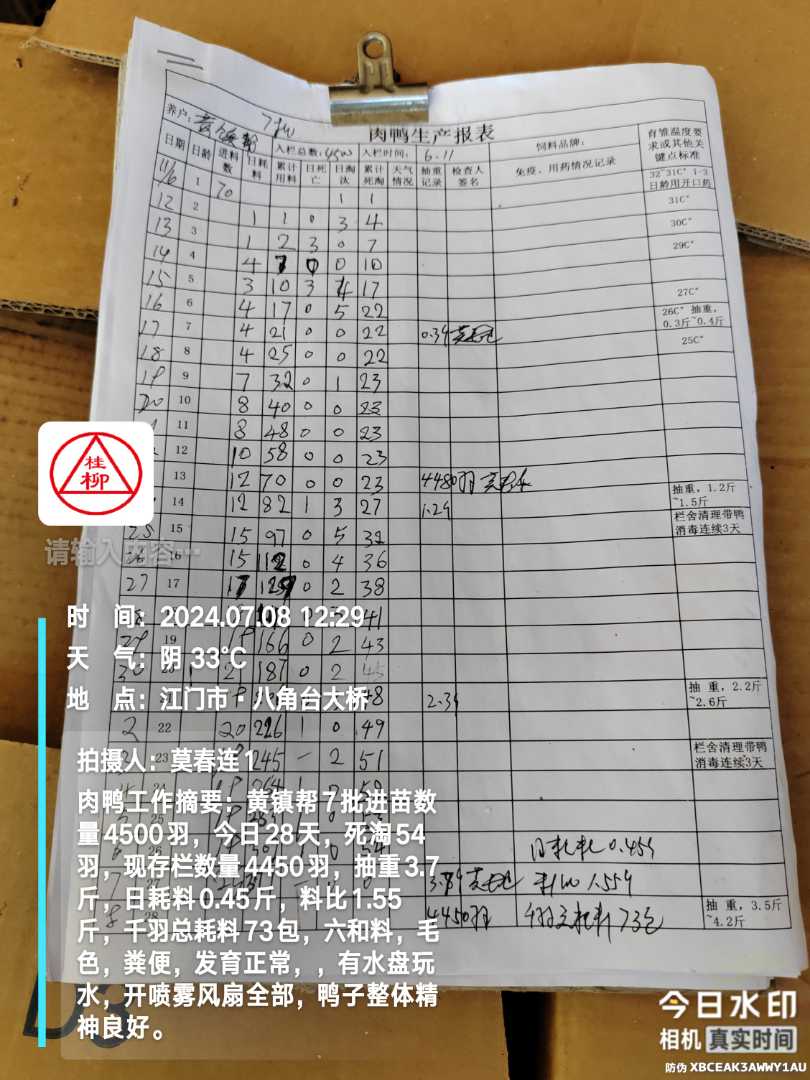 肉鸭生产报表
养户: 黄镇帮 7批
入栏总数: 4500 入栏时间: 6.11 饲料品牌:
日期 日龄 进料数 日耗料 累计用料 日死亡 日淘汰 累计死淘 天气情况 抽重记录 检查人签名 免疫、用药情况记录 育雏温度要求或其他关键点标准
11/6 1 70 32°31C° 1-3日龄用开口药
12 2 1 1 31C°
13 3 1 1 0 3 4 30C°
14 4 1 2 3 0 7 29C°
15 5 4 7 0 0 10
16 6 3 10 3 4 17 27C°
17 7 4 17 0 5 22 26C° 抽重,0.3斤~0.4斤
18 8 4 21 0 0 22 0.3斤 25C°
19 9 4 25 0 0 22
20 10 7 32 0 1 23
11 8 40 0 0 23
12 8 48 0 0 23
13 10 58 0 0 23
14 12 70 0 0 23 4480羽 抽重,1.2斤~1.5斤
25 15 12 82 1 3 27 1.2斤 栏舍清理带鸭消毒连续3天
16 15 97 0 5 32
27 17 15 112 0 4 36
17 129 0 2 38
19 41
30 166 0 2 43
21 187 0 2 45 抽重,2.2斤~2.6斤
2 22 48 2.3斤
23 20 226 1 0 49 栏舍清理带鸭消毒连续3天
245 一 2 51
25
日耗料0.45斤
7 3.7斤 料比1.55斤
8 28 4450羽 千羽总耗料73包 抽重,3.5斤~4.2斤
桂柳
请输入内容…
时 间:2024.07.08 12:29
天 气:阴 33℃
地 点:江门市·八角台大桥
拍摄人:莫春连1
肉鸭工作摘要:黄镇帮7批进苗数
量4500羽,今日28天,死淘54
羽,现存栏数量4450羽,抽重3.7
斤,日耗料0.45斤,料比1.55
斤,千羽总耗料73包,六和料,毛
色,粪便,发育正常,,有水盘玩
水,开喷雾风扇全部,鸭子整体精
神良好。
今日水印
相机 真实时间
防伪 XBCEAK3AWWY1AU